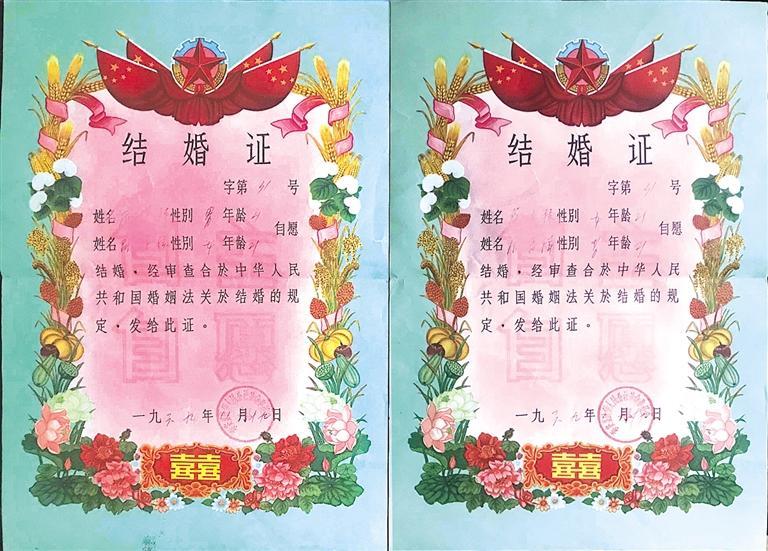 结婚证
字第 91 号
姓名 性别 男 年龄 21
姓名 性别 女 年龄 21
自愿
结婚·经审查合於中华人民
共和国婚姻法关於结婚的规
定·发给此证。
一九六九年 月 日
囍
结婚证
字第 91 号
姓名 性别 女 年龄 21
姓名 性别 男 年龄 21
自愿
结婚·经审查合於中华人民
共和国婚姻法关於结婚的规
定·发给此证。
一九六九年 月 日
囍